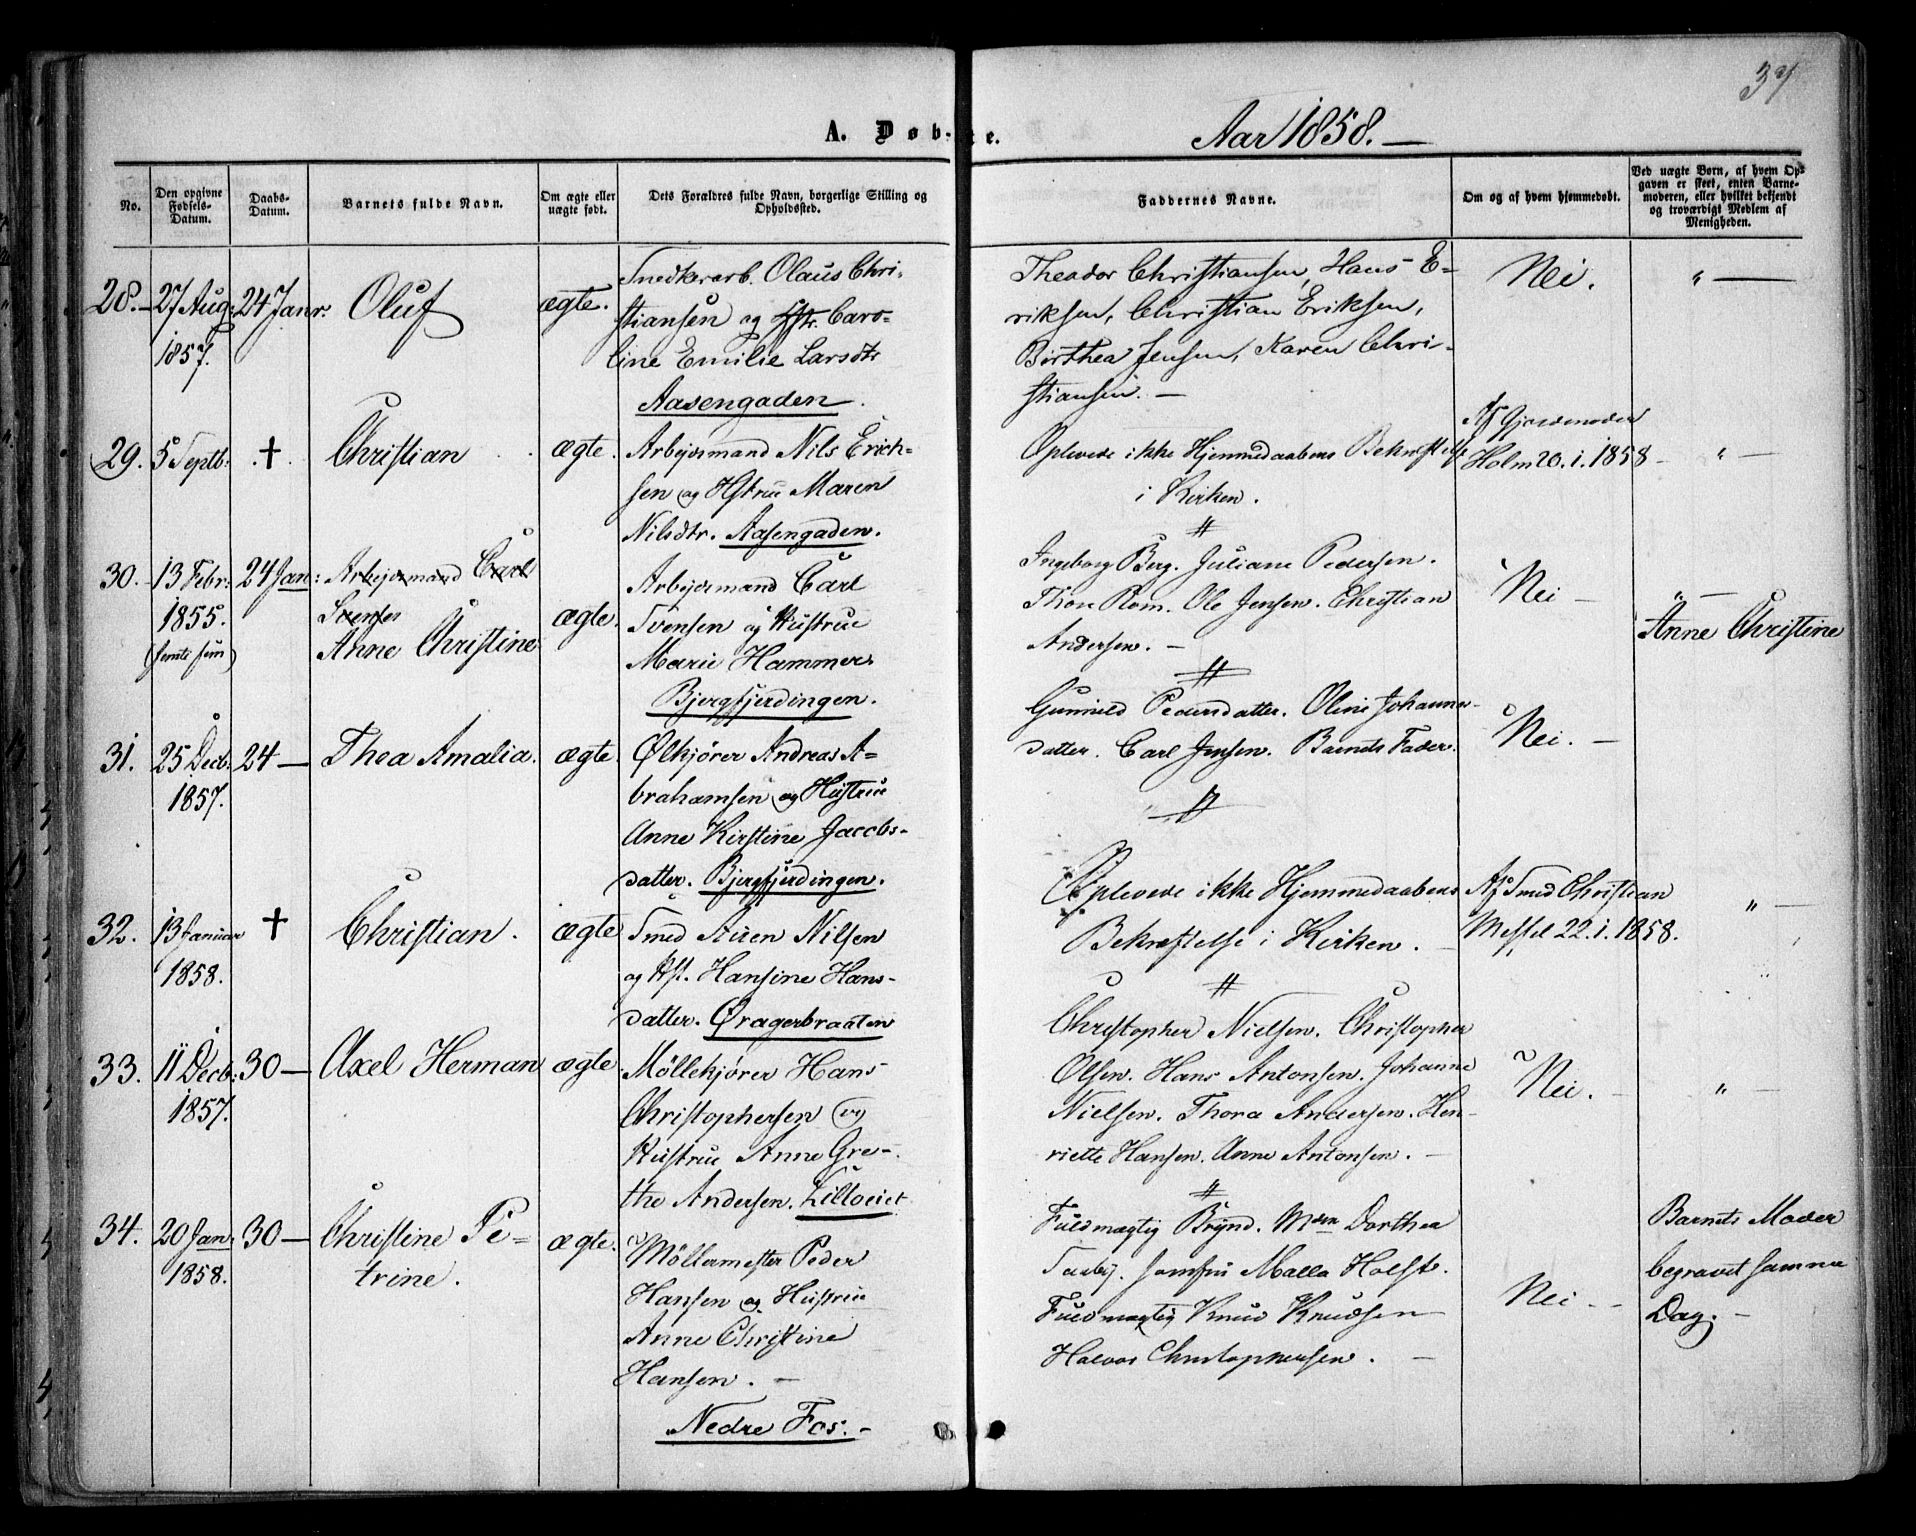 A. Døb-
te.
Aar 1858. —
No.
Den opgivne Fødsels-Datum.
Daabs-Datum.
Barnets fulde Navn.
Om ægte eller uægte født.
Dets Forældres fulde Navn, borgerlige Stilling og Opholdssted.
Faddernes Navne.
Om og af hvem hjemmedøbt.
Ved uægte Børn, af hvem Op-
gaven er skeet, enten Barne-
moderen, eller hvilket bekjendt
og troværdigt Medlem af
Menigheden.
28. – 27 Aug: 1857. 24 Janr. Oluf ægte.
Snedkerarb. Olaus Chri-
stiansen og Hstr. Caro-
line Emilie Larsdtr
Aasengaden.
Theodor Christiansen, Hans E-
riksen, Christian Eriksen,
Birthea Jensen, Karen Chri-
stiansen. —
Nei. " —
29. 5 Septb: † Christian ægte.
Arbejdsmand Nils Erich-
sen og Hstrue Maren
Nilsdtr. Aasengaden.
Oplevede ikke Hjemmedaabens Bekræftelse
i Kirken.
Af Gjordemoder
Holm 20.1.1858 – " —
30. – 13 Febr: 1855. (femti fem) 24 Jan: Arbejdsmand Carl
Svensen
Anne Christine ægte.
Arbejdsmand Carl
Svensen og Hustrue
Marie Hammer
Bjergfjerdingen.
Ingeborg Berg. Juliane Pedersen.
Thon Rom. Ole Jensen. Christian
Andersen. –
Nei – " —
Anne Christine
31. 25 Decb: 1857. 24 — Thea Amalia. ægte.
Ølkjører Andreas A-
brahamsen og Hustrue
Anne Kirstine Jacobs-
datter. Bjergfjerdingen.
Gunnild Pedersdatter. Oline Johannes-
datter. Carl Jensen. Barnets Fader.
Nei. —
32. 13 Januar 1858. † Christian. ægte
Smed Nilsen
og Hst. Hansine Hans-
datter. Øragerbraaten
Oplevede ikke Hjemmedaabens
Bekræftelse i Kirken. –
Af Smed Christian
Messel 22.1.1858. " —
33. 11 Decb: 1857. 30 — Axel Herman ægte.
Möllekjører Hans
Christophersen og
Hustrue Anne Gre-
the Andersen. Lilloeiet
Christopher Nielsen. Christopher
Olsen. Hans Antonsen. Johanne
Nielsen. Thora Andersen. Hen-
riette Hansen. Anne Antonsen. –
Nei. – " —
34. 20 Jan: 1858. 30 — Christine Pe-
trine. ægte.
Möllermester Peder
Hansen og Hustrue
Anne Christine
Hansen. –
Nedre Fos. –
Fuldmægtig Brynd. Mden Dorthea
Jomfru Malla Holst.
Fuldmægtig Knud Knudsen
Halvor Christophersen. –
Nei –
Barnets Moder
begravet samme
Dag. –